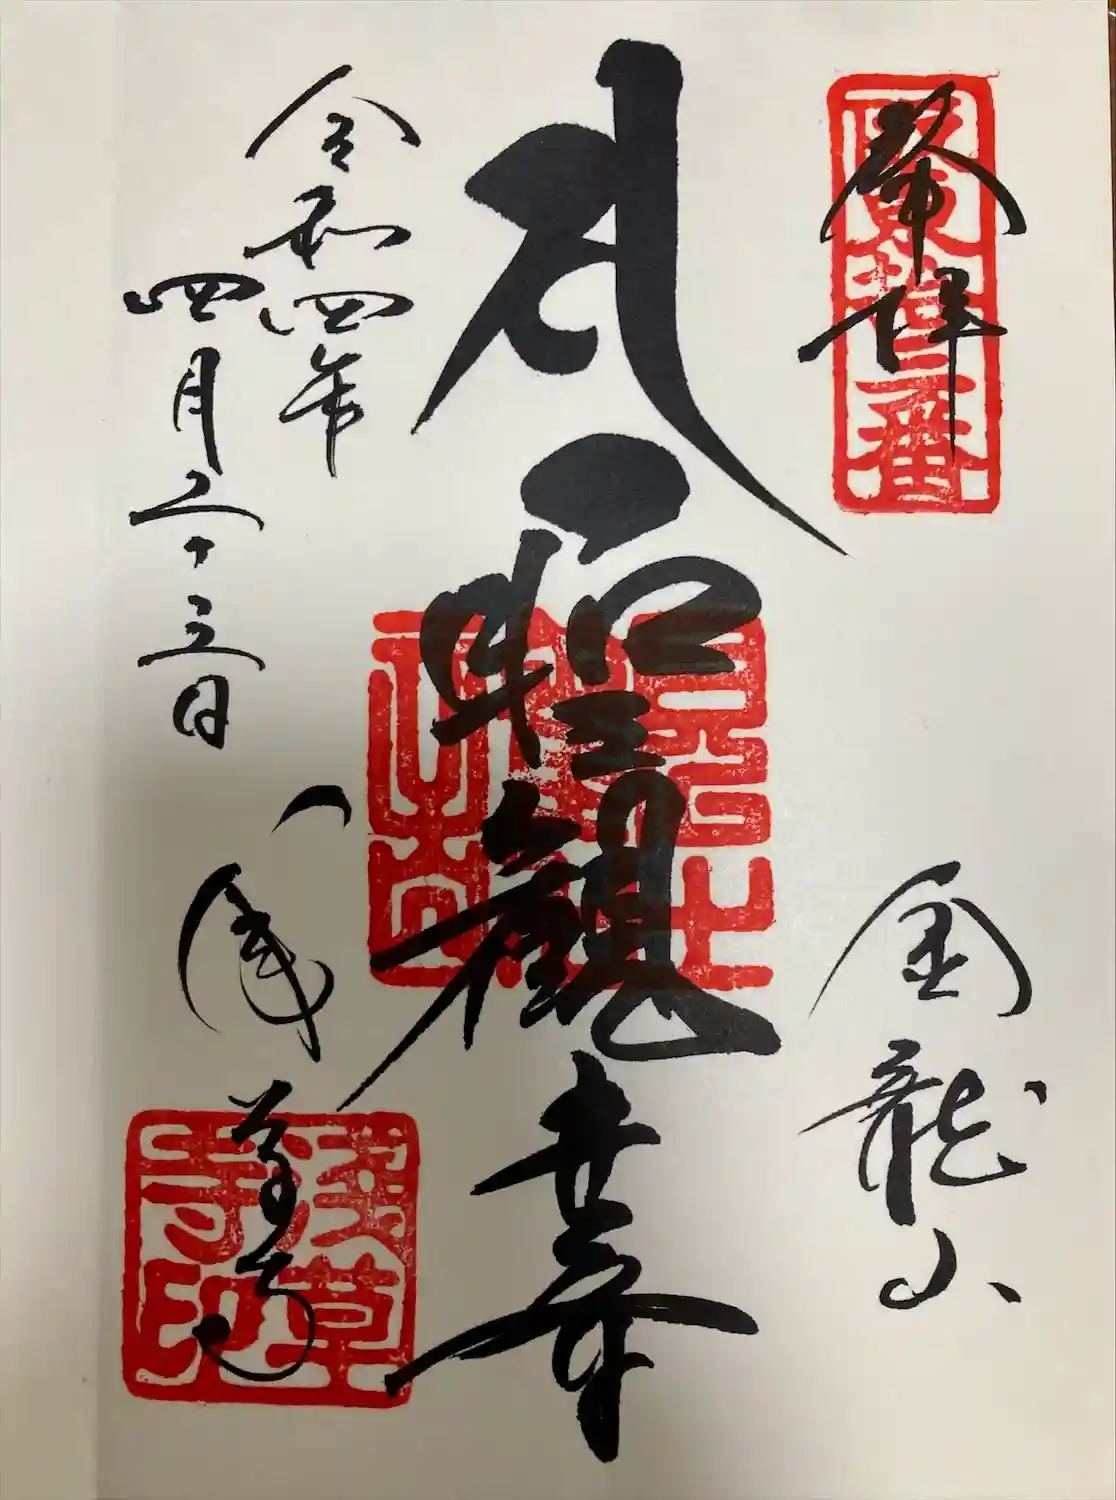 奉拝
坂東拾三番
金龍山
聖観世音
令和四年
四月二十三日
浅草寺